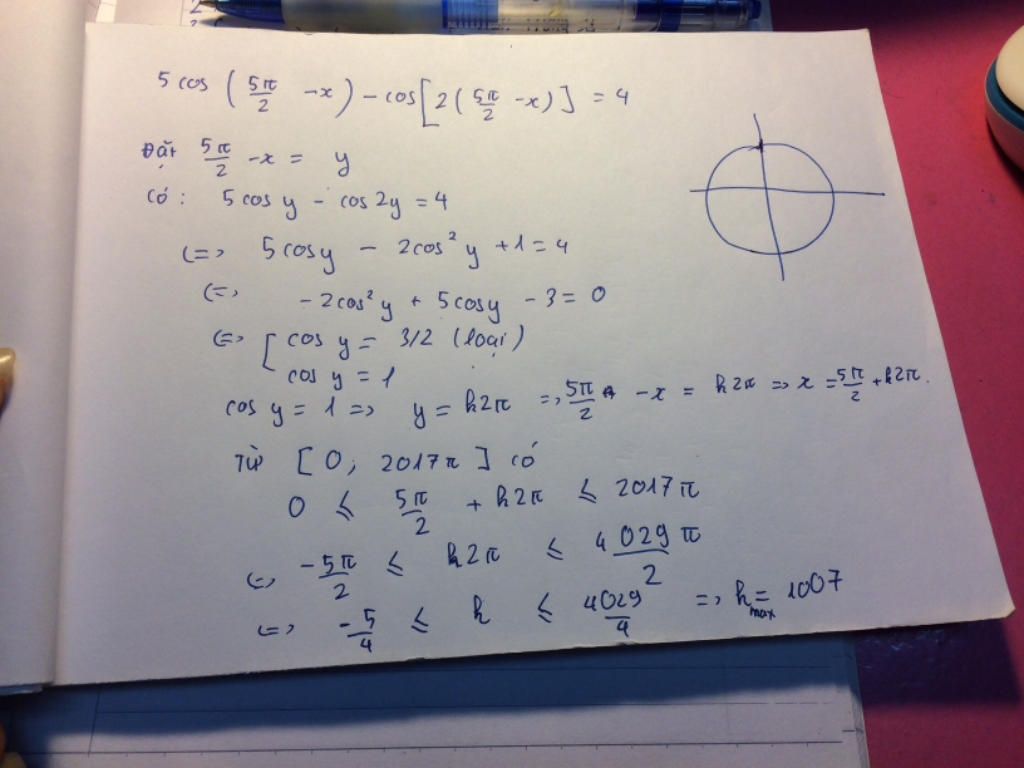 5 cos (5π/2 - x) - cos[2(5π/2 - x)] = 4
Đặt 5π/2 - x = y
Có: 5 cos y - cos 2y = 4
(=> 5 cos y - 2cos² y + 1 = 4
(=> - 2cos² y + 5 cos y - 3 = 0
(=> [ cos y = 3/2 (loại)
cos y = 1
cos y = 1 => y = k2π => 5π/2 - x = k2π => x = 5π/2 + k2π.
Từ [0; 2017π] có
0 ≤ 5π/2 + k2π ≤ 2017π
(=> -5π/2 ≤ k2π ≤ 4029/2 π
(=> -5/4 ≤ k ≤ 4029/4 => k max = 1007